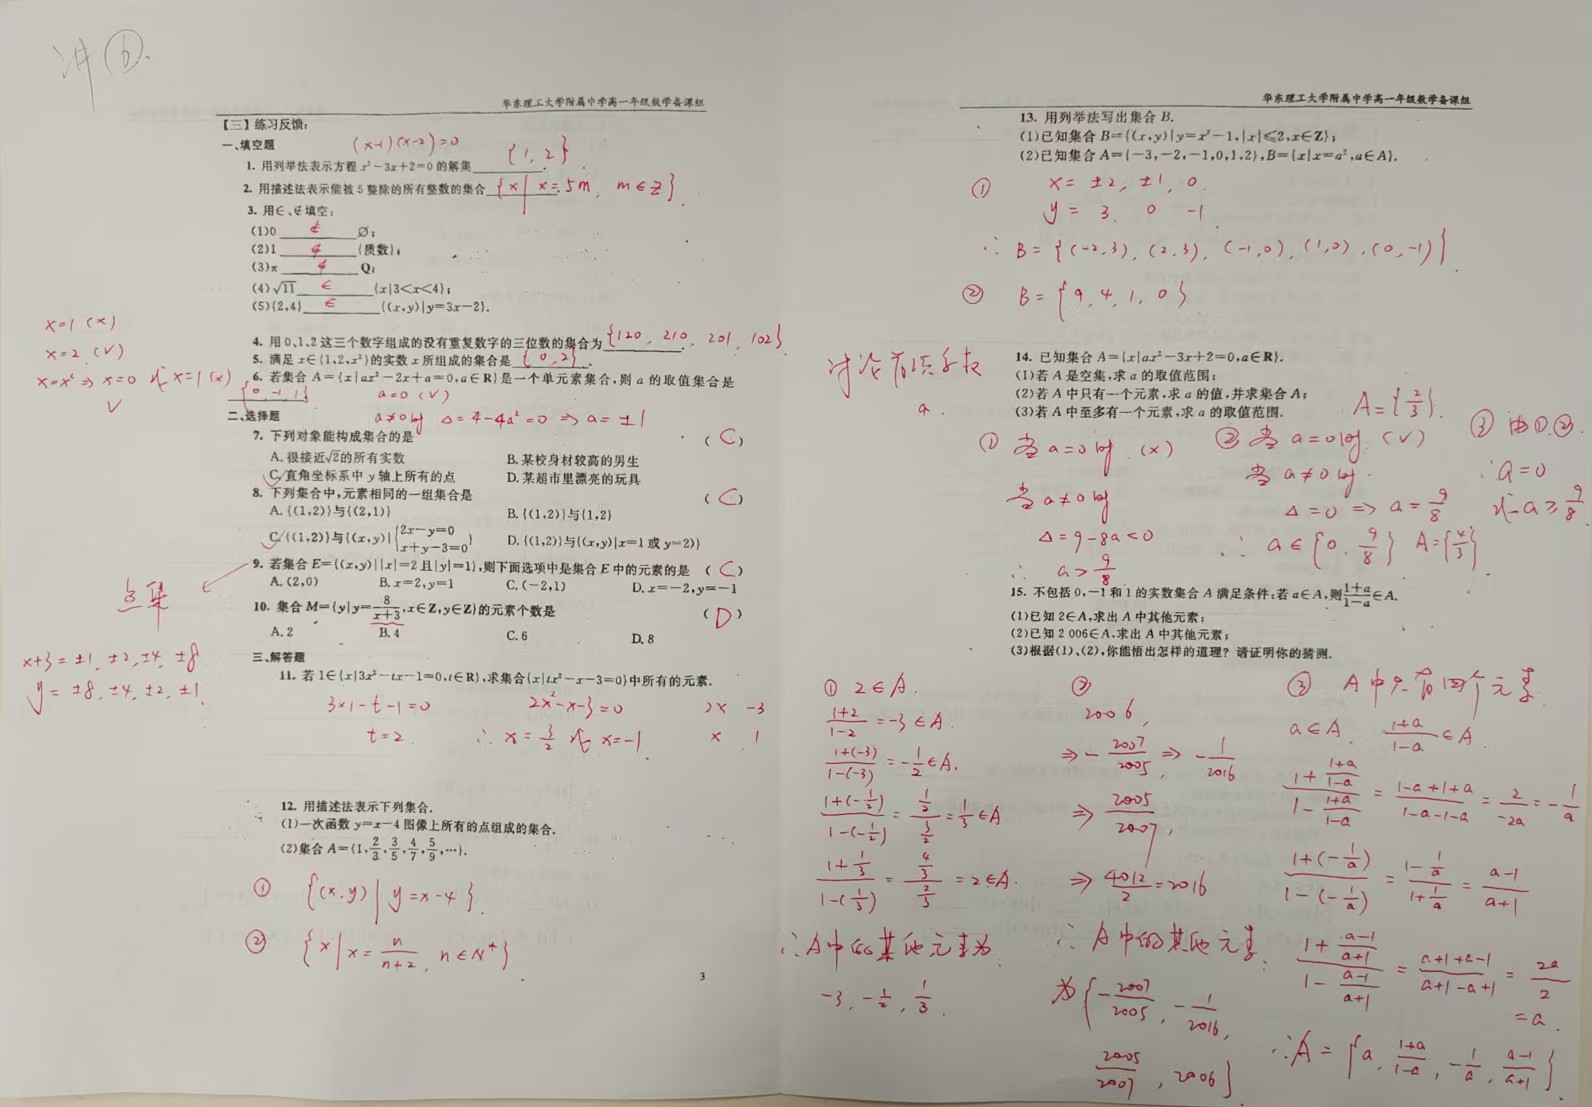 讲⑥.
华东理工大学附属中学高一年级数学备课组
【三】练习反馈:
一、填空题
(x-1)(x-2)=0
1. 用列举法表示方程 x²-3x+2=0 的解集 {1, 2}.
2. 用描述法表示能被 5 整除的所有整数的集合 {x | x=5m, m∈Z}.
3. 用∈、∉填空:
(1)0 ∉ ∅;
(2)1 ∉ {质数};
(3)π ∉ Q;
(4)√11 ∈ {x|3<x<4};
(5){2,4} ∈ {(x,y)|y=3x-2}.
4. 用 0、1、2 这三个数字组成的没有重复数字的三位数的集合为 {120, 210, 201, 102}.
x=1 (×)
x=2 (√)
x=x² ⇒ x=0 或 x=1 (×)
√
5. 满足 x∈{1,2,x²}的实数 x 所组成的集合是 {0,2}.
6. 若集合 A={x|ax²-2x+a=0,a∈R}是一个单元素集合,则 a 的取值集合是
{0, -1, 1}
a=0 (√)
a≠0时 Δ=4-4a²=0 ⇒ a=±1
二、选择题
7. 下列对象能构成集合的是 (C)
A. 很接近√2的所有实数 B. 某校身材较高的男生
C. 直角坐标系中 y 轴上所有的点 D. 某超市里漂亮的玩具
8. 下列集合中,元素相同的一组集合是 (C)
A. {(1,2)}与{(2,1)} B. {(1,2)}与{1,2}
C. {(1,2)}与{(x,y)|{2x-y=0 x+y-3=0} D. {(1,2)}与{(x,y)|x=1 或 y=2)}
9. 若集合 E={(x,y)||x|=2 且|y|=1},则下面选项中是集合 E 中的元素的是 (C)
点集
A. (2,0) B. x=2,y=1 C. (-2,1) D. x=-2,y=-1
10. 集合 M={y|y=8/(x+3),x∈Z,y∈Z}的元素个数是 (D)
A. 2 B. 4 C. 6 D. 8
x+3=±1, ±2, ±4, ±8
y=±8, ±4, ±2, ±1
三、解答题
11. 若 1∈{x|3x²-tx-1=0,t∈R},求集合{x|tx²-x-3=0}中所有的元素.
3×1-t-1=0 2x²-x-3=0 2x -3
t=2. ∴ x=3/2 或 x=-1 x 1
12. 用描述法表示下列集合.
(1)一次函数 y=x-4 图像上所有的点组成的集合.
(2)集合 A={1,2/3,3/5,4/7,5/9,…}.
① {(x,y) | y=x-4}.
② {x | x=n/(n+2), n∈N⁺}
3
华东理工大学附属中学高一年级数学备课组
13. 用列举法写出集合 B.
(1)已知集合 B={(x,y)|y=x²-1,|x|≤2,x∈Z};
(2)已知集合 A={-3,-2,-1,0,1,2},B={x|x=a²,a∈A}.
① x=±2, ±1, 0.
y=3. 0 -1
∴ B={(-2,3), (2,3), (-1,0), (1,0), (0,-1)}.
② B={9,4,1,0}
14. 已知集合 A={x|ax²-3x+2=0,a∈R}.
(1)若 A 是空集,求 a 的取值范围;
(2)若 A 中只有一个元素,求 a 的值,并求集合 A;
(3)若 A 中至多有一个元素,求 a 的取值范围.
讨论首项系数
a.
A={2/3}.
① 当 a=0时 (×)
当 a≠0时
Δ=9-8a<0
∴ a>9/8
② 当 a=0时 (√)
当 a≠0时.
Δ=0 ⇒ a=9/8
∴ a∈{0, 9/8} A={4/3}
③ 由①.②.
∴a=0
或 a≥9/8
15. 不包括 0,-1 和 1 的实数集合 A 满足条件:若 a∈A,则(1+a)/(1-a)∈A.
(1)已知 2∈A,求出 A 中其他元素;
(2)已知 2 006∈A,求出 A 中其他元素;
(3)根据(1)、(2),你能悟出怎样的道理? 请证明你的猜测.
① 2∈A
(1+2)/(1-2)=-3∈A.
(1+(-3))/(1-(-3))=-1/2∈A.
(1+(-1/2))/(1-(-1/2))=(1/2)/(3/2)=1/3∈A
(1+1/3)/(1-(1/3))=(4/3)/(2/3)=2∈A.
∴A中的其他元素为
-3, -1/2, 1/3.
②
2006,
⇒ -2007/2005, ⇒ -1/2016
⇒ 2005/2007,
⇒ 4012/2=2016
∴ A中的其他元素
为{-2007/2005, -1/2016,
2005/2007, 2006}
③ A中只有四个元素
a∈A, (1+a)/(1-a)∈A.
(1+(1+a)/(1-a))/(1-(1+a)/(1-a))=(1-a+1+a)/(1-a-1-a)=2/(-2a)=-1/a
(1+(-1/a))/(1-(-1/a))=(1-1/a)/(1+1/a)=(a-1)/(a+1)
(1+(a-1)/(a+1))/(1-(a-1)/(a+1))=(a+1+a-1)/(a+1-a+1)=2a/2
=a.
∴A={a, (1+a)/(1-a), -1/a, (a-1)/(a+1)}